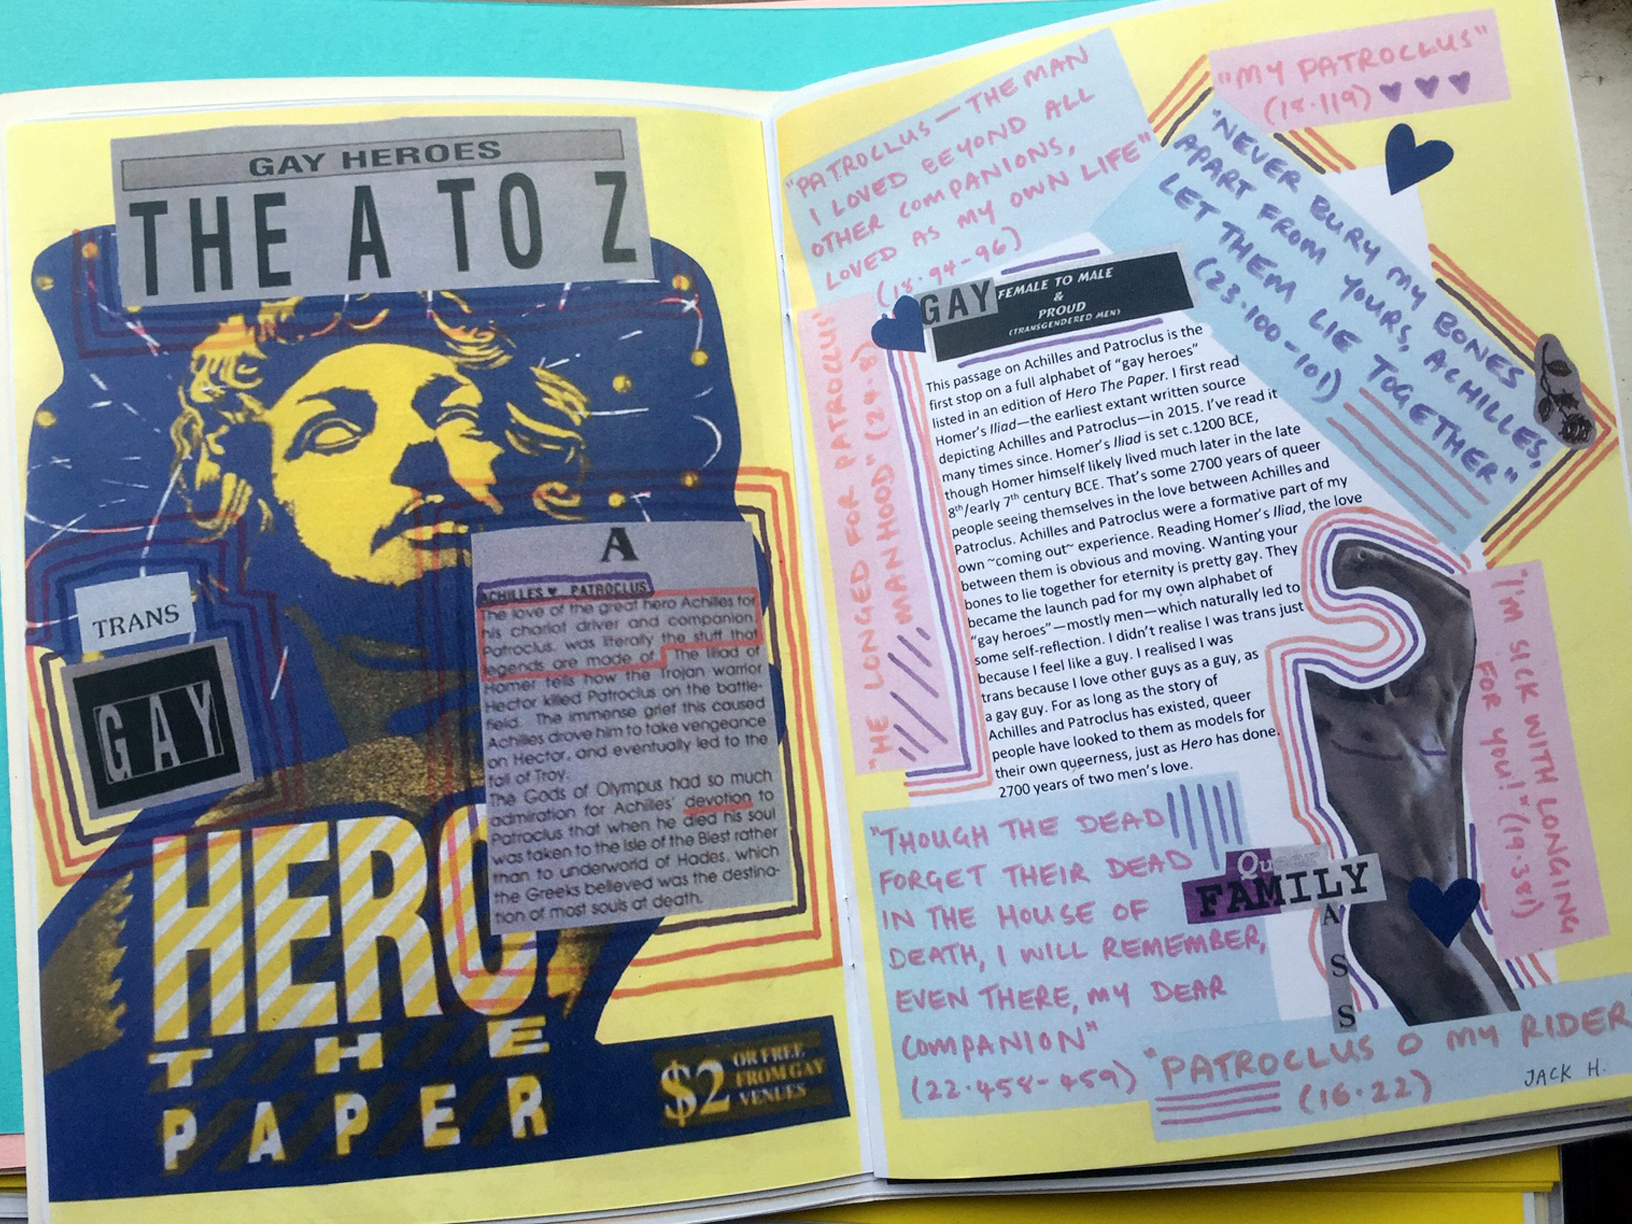 GAY HEROES
THE A TO Z
A
ACHILLES ♥ PATROCLUS
The love of the great hero Achilles for
his chariot driver and companion,
Patroclus, was literally the stuff that
legends are made of. The Iliad of
Homer tells how the Trojan warrior
Hector killed Patroclus on the battle-
field. The immense grief this caused
Achilles drove him to take vengeance
on Hector, and eventually led to the
fall of Troy.
The Gods of Olympus had so much
admiration for Achilles' devotion to
Patroclus that when he died his soul
was taken to the Isle of the Blest rather
than to underworld of Hades, which
the Greeks believed was the destina-
tion of most souls at death.
TRANS
GAY
HERO
THE
PAPER
$2
OR FREE
FROM GAY
VENUES
"PATROCLUS—THE MAN
I LOVED BEYOND ALL
OTHER COMPANIONS,
LOVED AS MY OWN LIFE"
(18.94-96)
"MY PATROCLUS"
(18.119) ♥ ♥ ♥
"NEVER BURY MY BONES
APART FROM YOURS, ACHILLES,
LET THEM LIE TOGETHER"
(23.100-101)
"HE LONGED FOR PATROCLUS'
MANHOOD" (24.8)
GAY
FEMALE TO MALE
&
PROUD
(TRANSGENDERED MEN)
This passage on Achilles and Patroclus is the
first stop on a full alphabet of "gay heroes"
listed in an edition of Hero The Paper. I first read
Homer's Iliad—the earliest extant written source
depicting Achilles and Patroclus—in 2015. I've read it
many times since. Homer's Iliad is set c.1200 BCE,
though Homer himself likely lived much later in the late
8th/early 7th century BCE. That's some 2700 years of queer
people seeing themselves in the love between Achilles and
Patroclus. Achilles and Patroclus were a formative part of my
own ~coming out~ experience. Reading Homer's Iliad, the love
between them is obvious and moving. Wanting your
bones to lie together for eternity is pretty gay. They
became the launch pad for my own alphabet of
"gay heroes"—mostly men—which naturally led to
some self-reflection. I didn't realise I was trans just
because I feel like a guy. I realised I was
trans because I love other guys as a guy, as
a gay guy. For as long as the story of
Achilles and Patroclus has existed, queer
people have looked to them as models for
their own queerness, just as Hero has done.
2700 years of two men's love.
"I'M SICK WITH LONGING
FOR YOU!" (19.381)
"THOUGH THE DEAD
FORGET THEIR DEAD
IN THE HOUSE OF
DEATH, I WILL REMEMBER,
EVEN THERE, MY DEAR
COMPANION"
(22.458-459)
Queer
FAMILY
A
S
S
"PATROCLUS O MY RIDER"
(16.22)
JACK H.